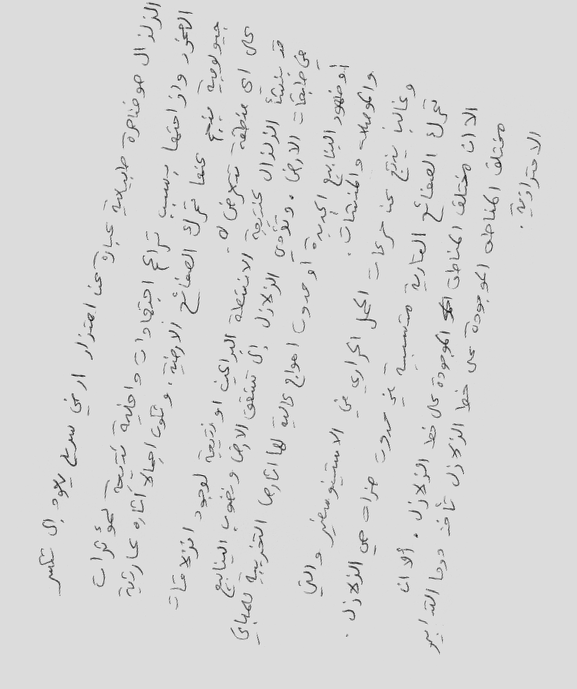 الزلزال هو ظاهرة طبيعية عبارة عن اهتزاز ارضي سريع يعود الى تكسر
الصخور وازاحتها بسبب تراكم اجتهادات داخلية نتيجة لمؤثرات
جيولوجية ينتج عنها تحرك الصفائح الارضية. وتكون اجمالا آثاره كارثية
على اي منطقة تتعرض له.
قد ينشأ الزلزال كنتيجة الانشطة البراكين او نتيجة لوجود انزلاقات
في طبقات الارض. وتؤدي الزلازل الى تشقق الارض ونضوب الينابيع
او ظهور الينابيع الجديدة او حدوث امواج عالية لها اثارها التخريبية للمباني
والموصلات والمنشئات.
وغالبا ينتج عن حركات الحمل الحراري في الاستينوسفير والتي
تحرك الصفائح القارية متسببة في حدوث هزات هي الزلازل.
الا ان مختلف المناطق الموجودة على خط الزلازل. الا ان
مختلف المناطق الموجودة على خط الزلازل تأخذ دوما التدابير
الاحترازية.